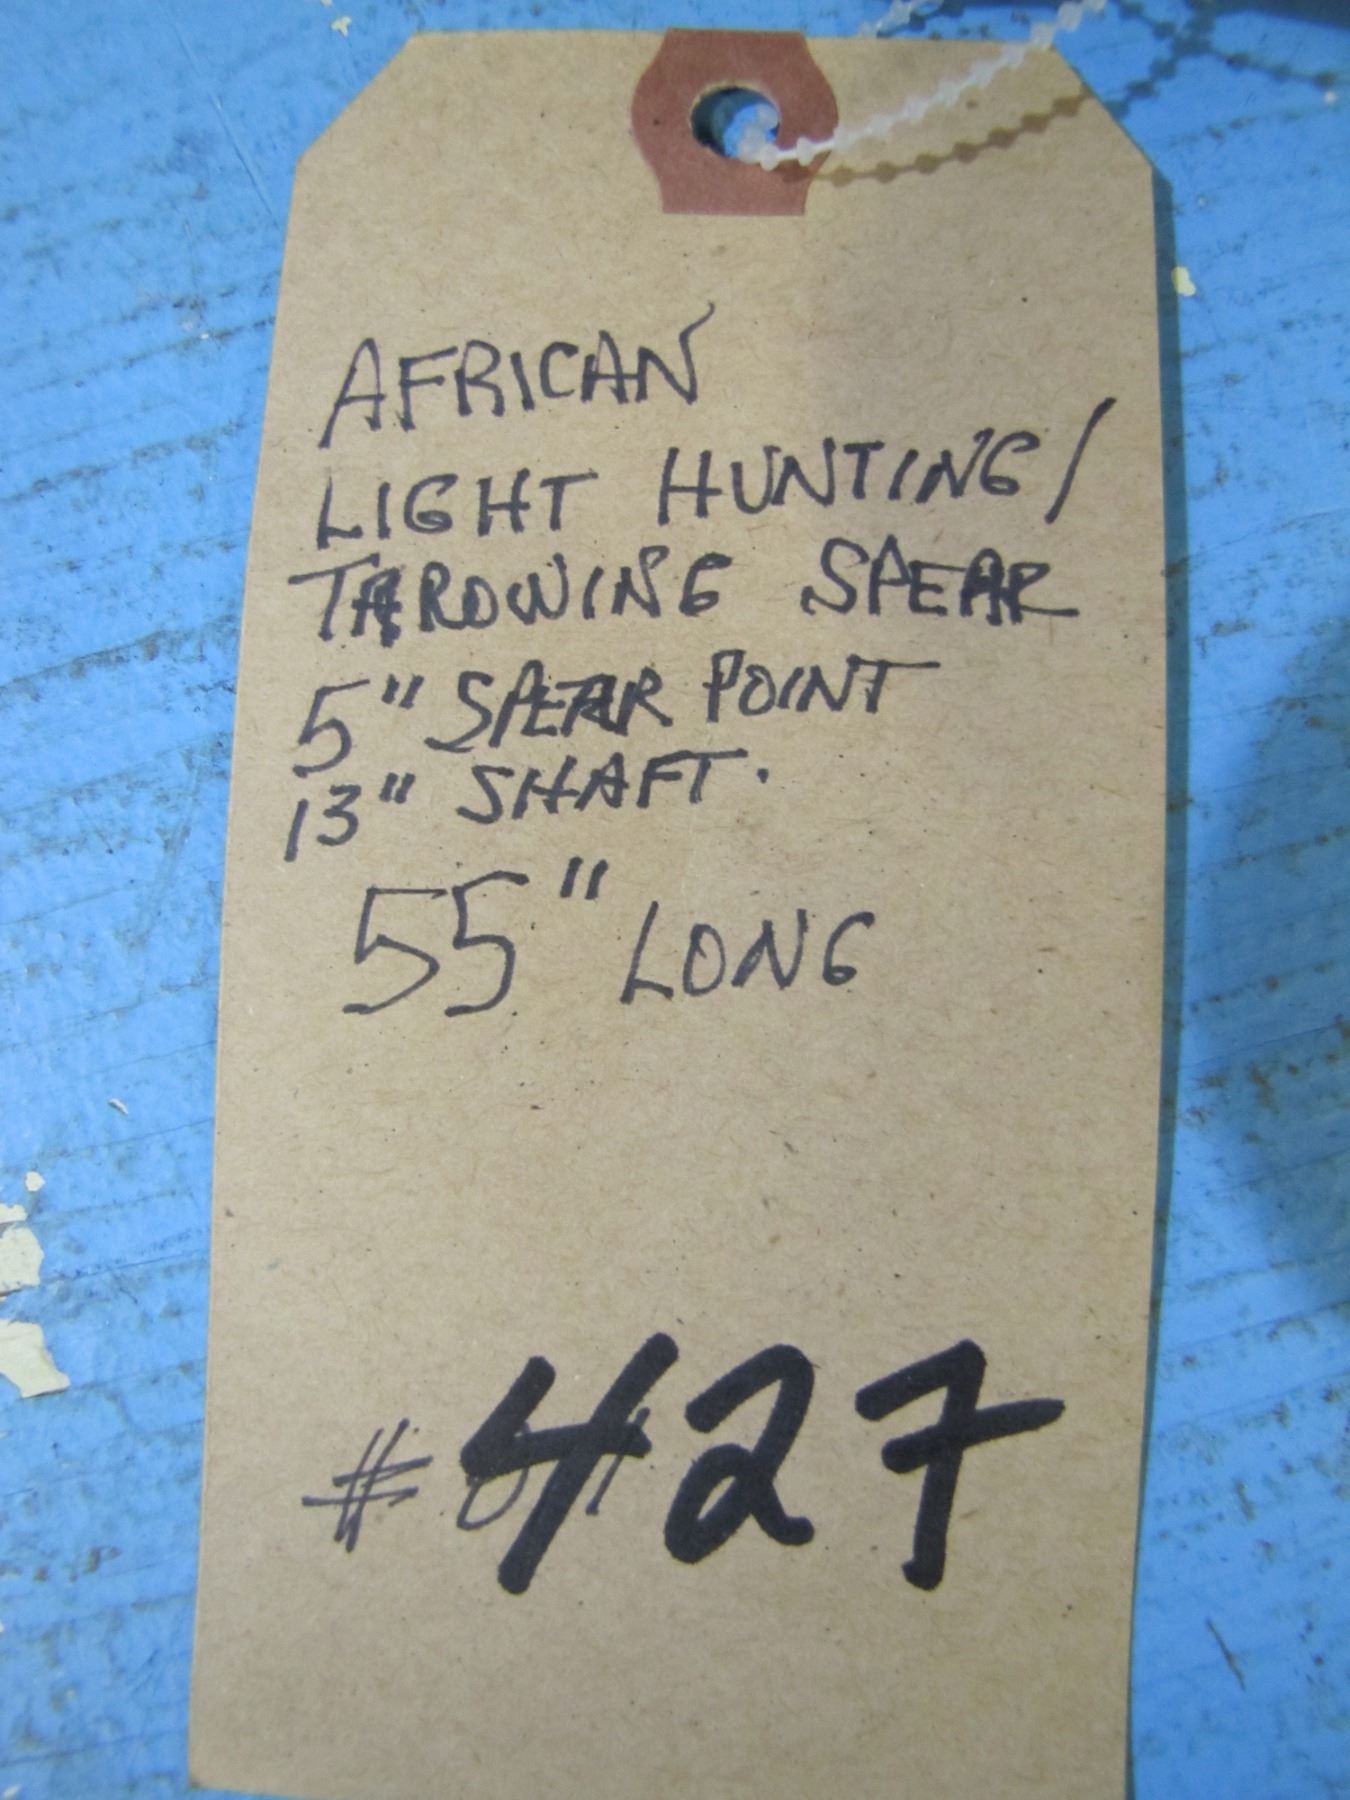 AFRICAN
LIGHT HUNTING/
THROWING SPEAR
5" SPEAR POINT
13" SHAFT.
55" LONG
# 427